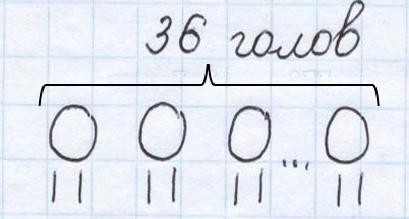 36 голов
...